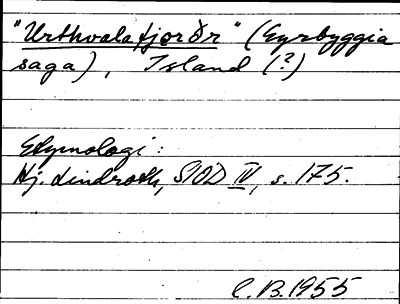 "Urthvalafjorðr" (Eyrbyggia
saga), Island (?)
Etymologi:
Hj. Lindroth, SIOD IV, s. 175.
C.B. 1955